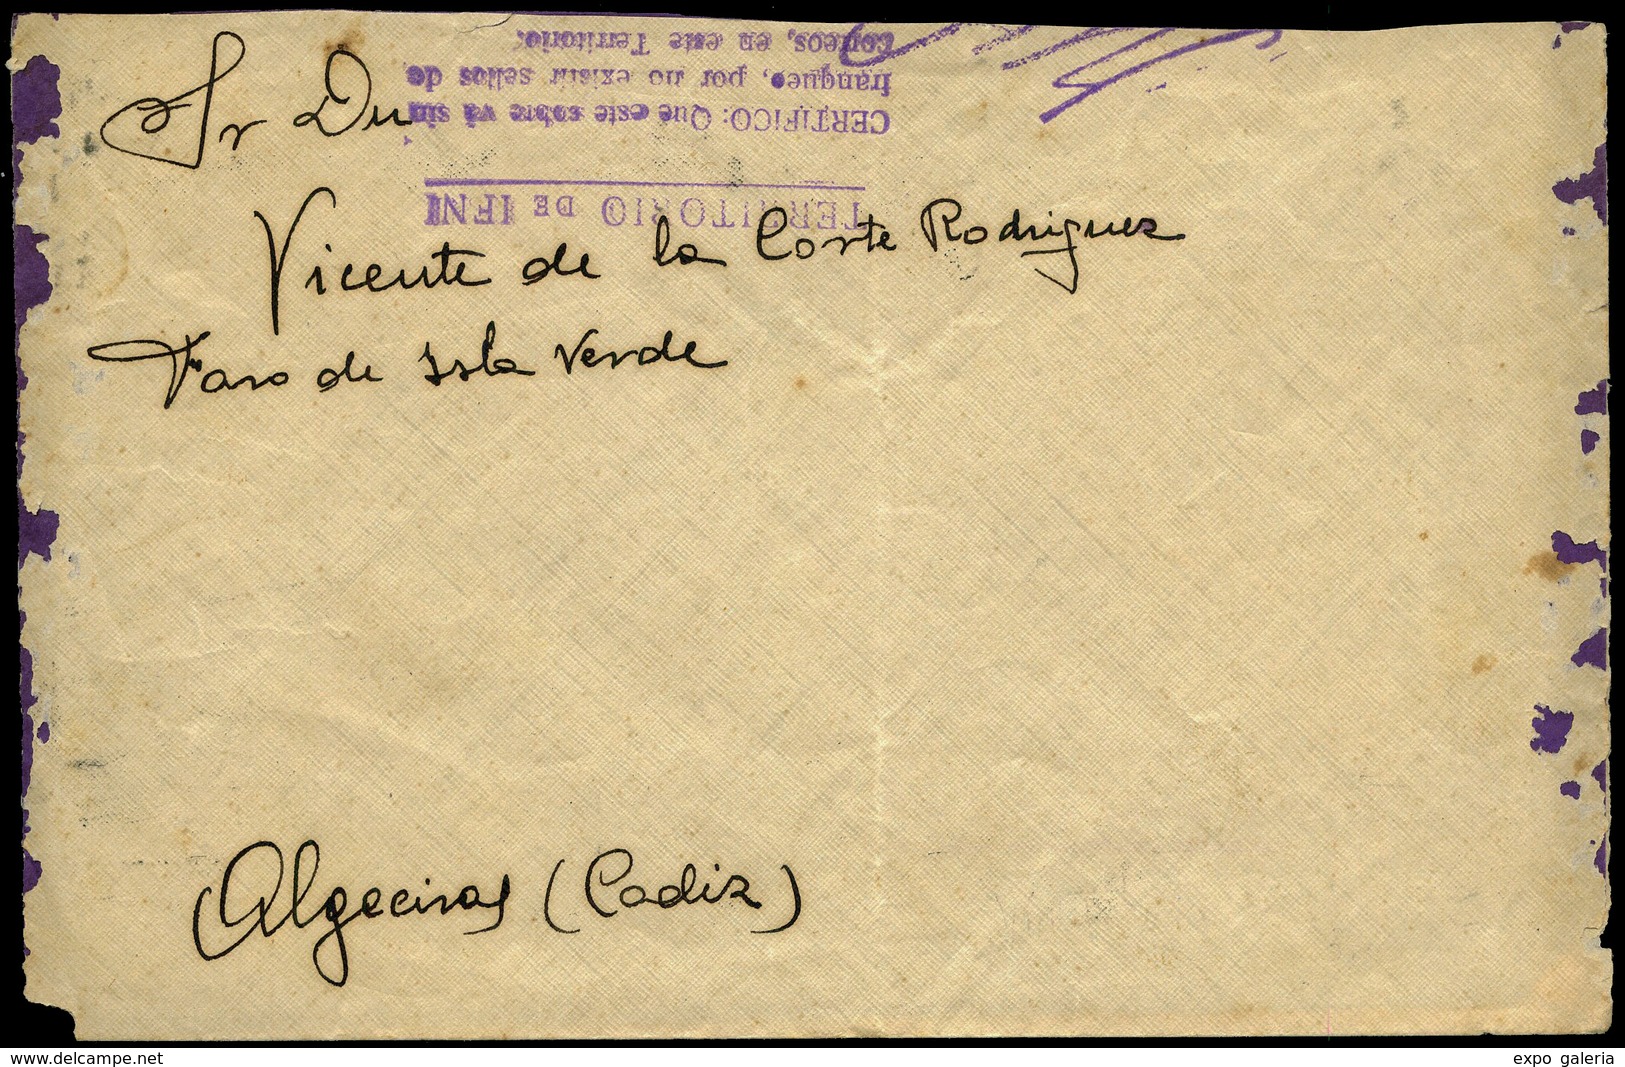 Sr Dn
Vicente de la Corte Rodriguez
Faro de Isla Verde
Algeciras (Cadiz)
TERRITORIO DE IFNI
CERTIFICO: Que este sobre vá sin
franqueo, por no existir sellos de
Correos, en este Territorio.
delcampe.net
expo galeria